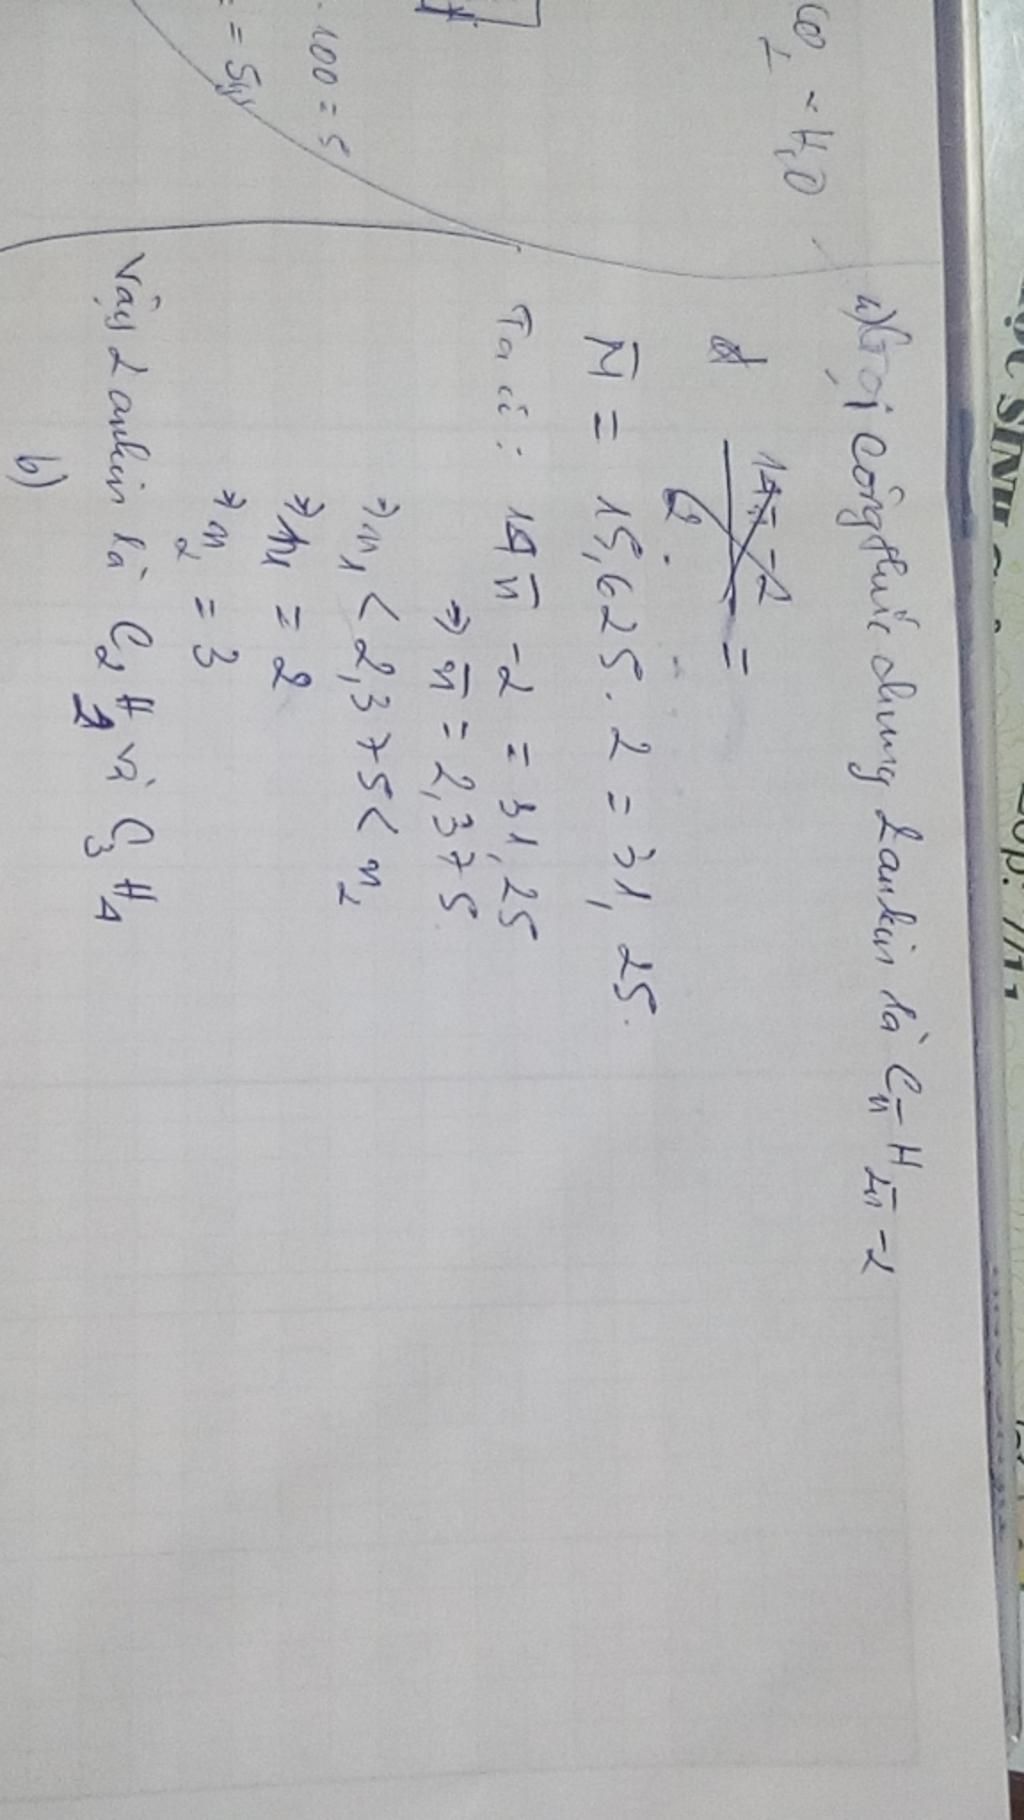 CO2 - H2O
. 100 = 5
= 5
a) Gọi công thức chung 2 ankin là Cn̅ H2n̅ -2
14n̅ -2
=
2
M̅ = 15,625 . 2 = 31,25.
Ta có: 14n̅ -2 = 31,25
⇒ n̅ = 2,375
⇒ n1 < 2,375 < n2
⇒ n1 = 2
⇒ n2 = 3
Vậy 2 ankin là C2H2 và C3H4
b)
HỌC SINH